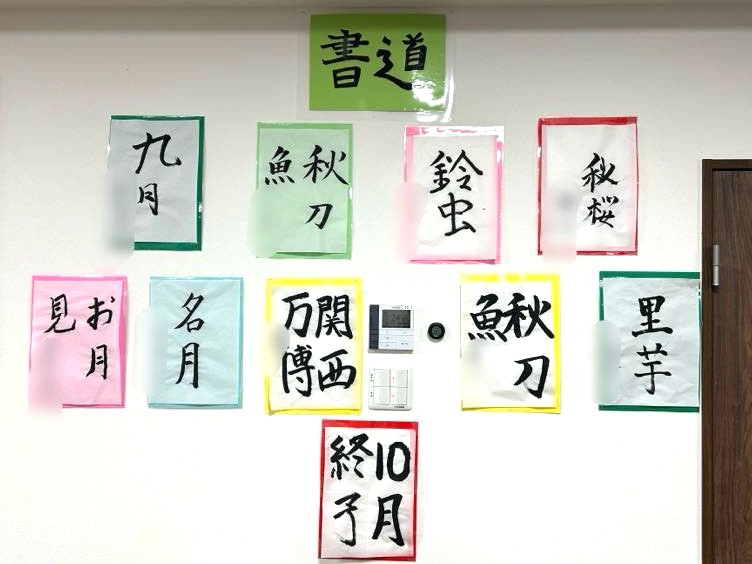 書道
九月
秋刀
魚
鈴虫
秋桜
お月
見
名月
関西
万博
秋刀
魚
里芋
10月
終了